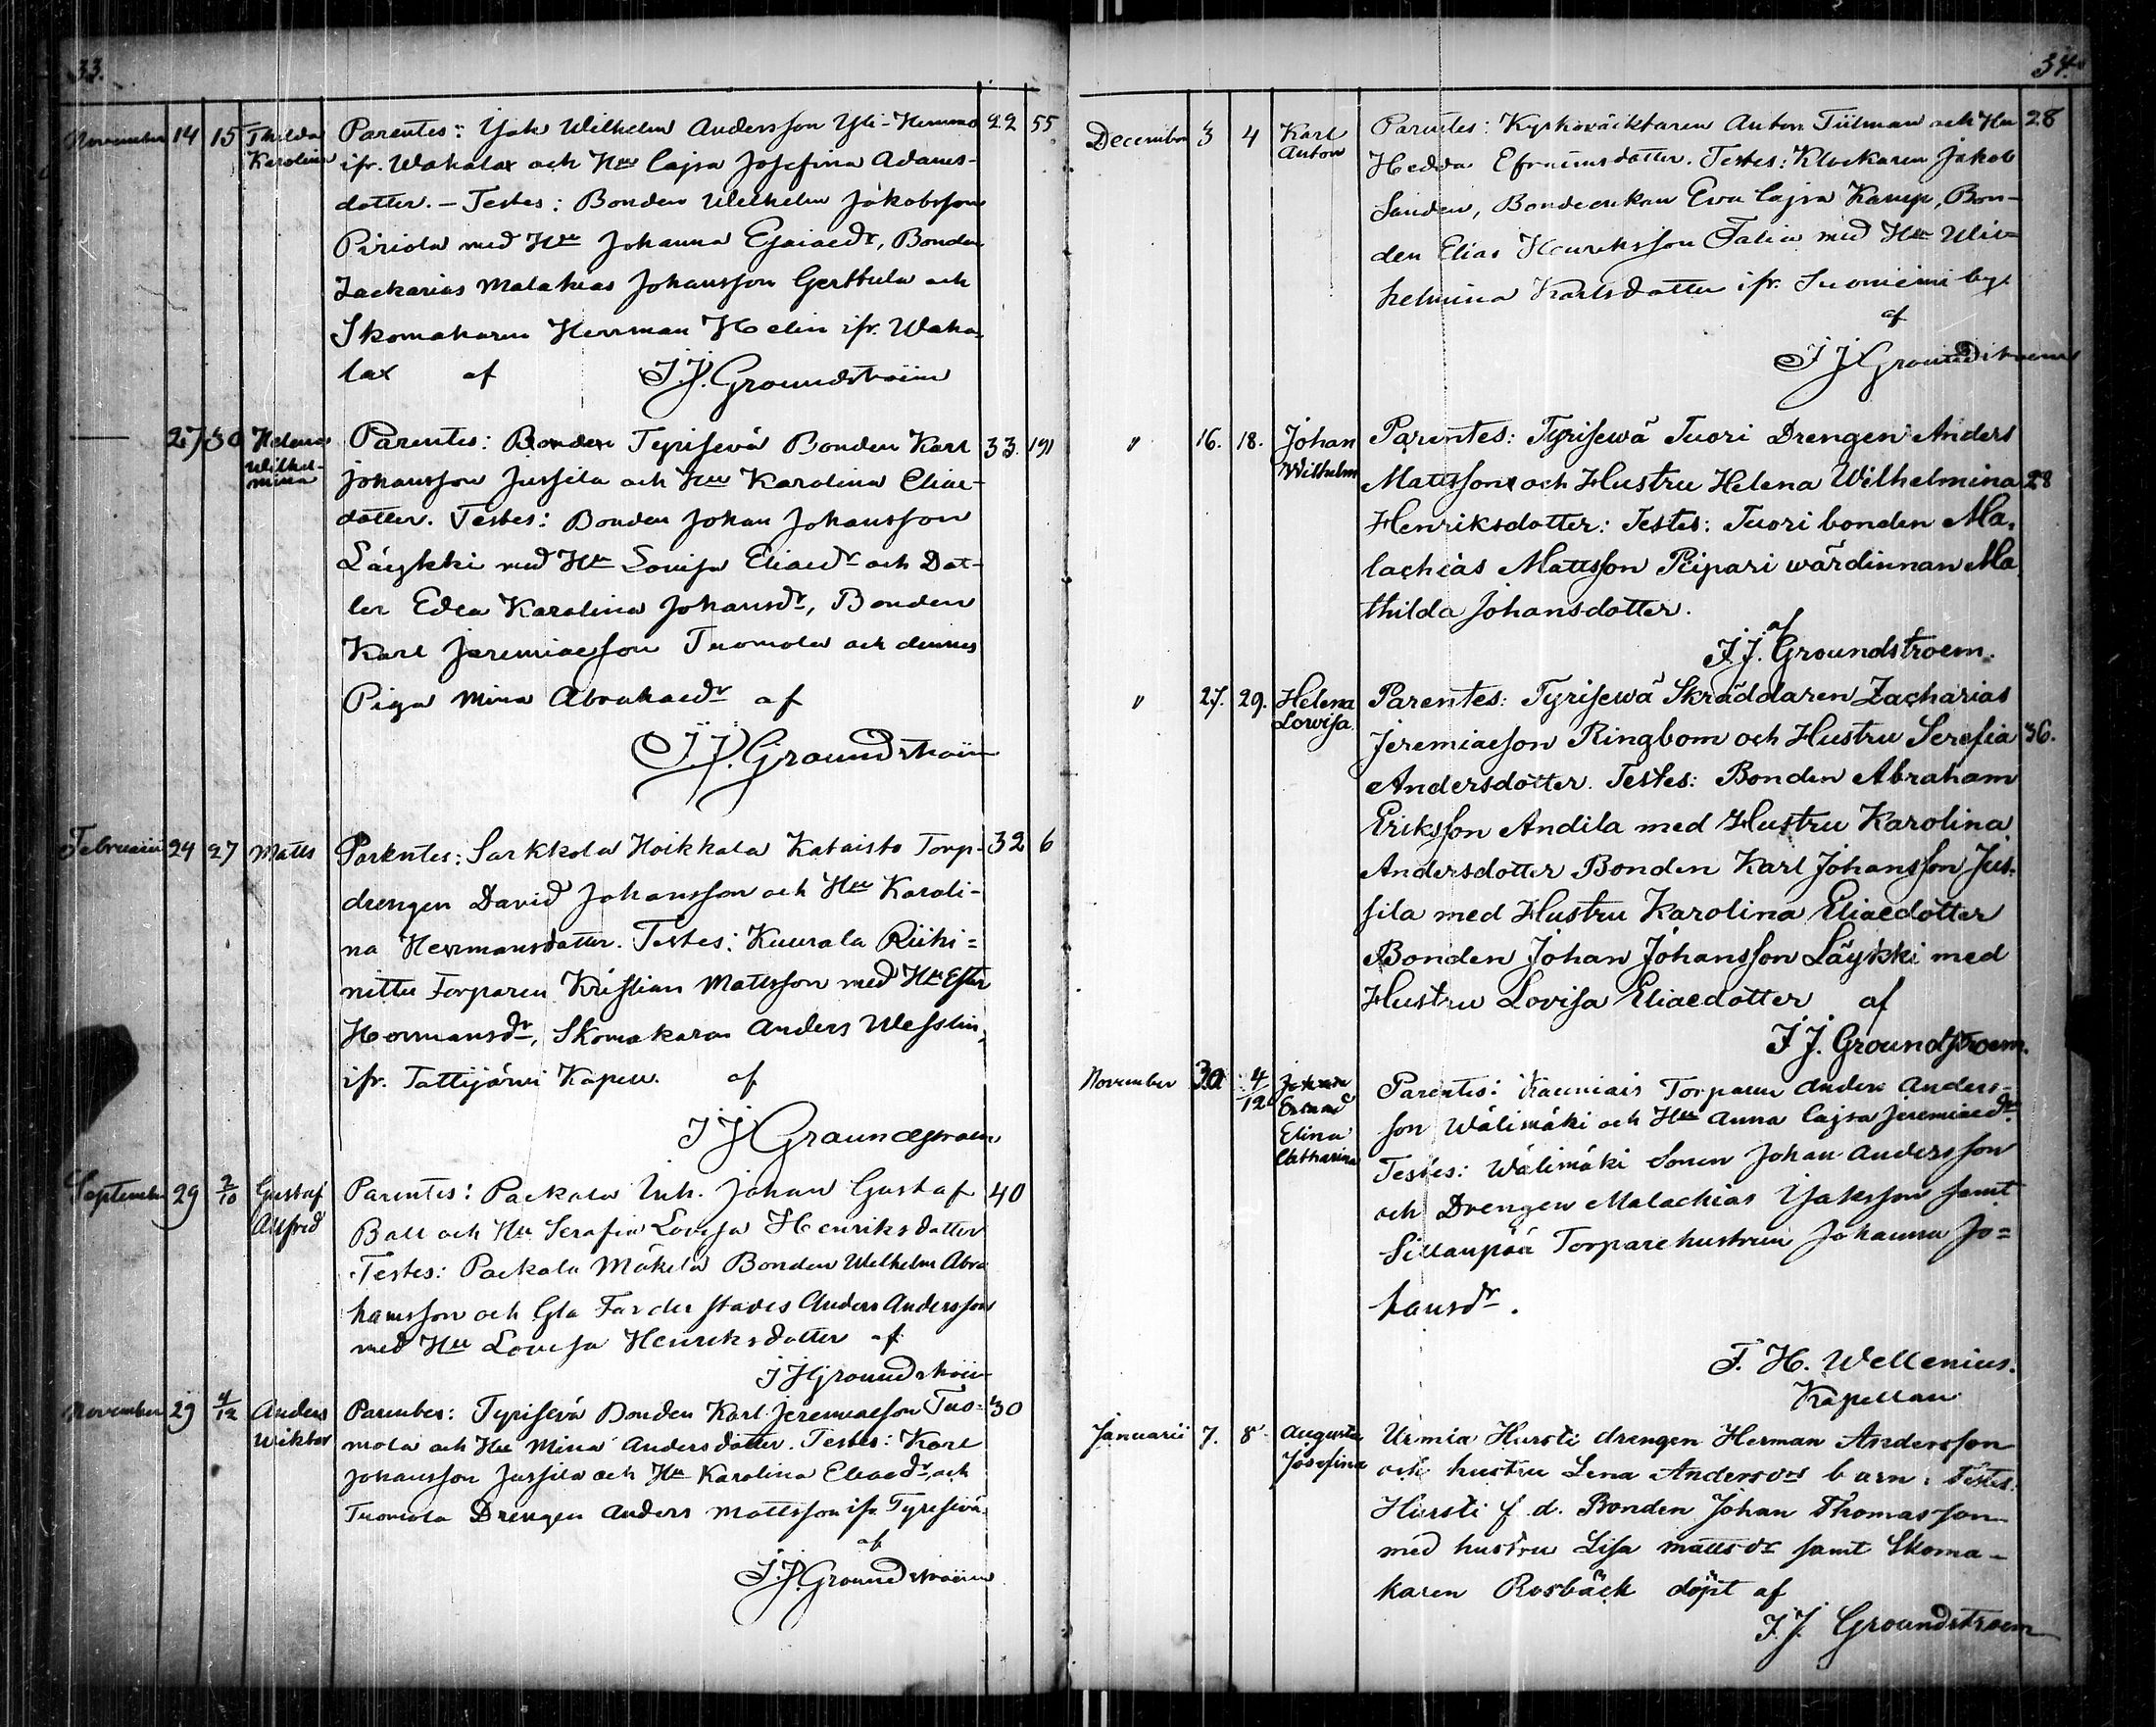 33.
November 14 15 Thilda Karolina Parentes: Isak Wilhelm Andersson Yli-Hemmo 22 55
ifr. Wahalax och Hu Cajsa Josefina Adams-
dotter. – Testes: Bonden Wilhelm Jakobsson
Piriola med Hu Johanna Esaiaedr, Bonden
Zackarias Malakias Johansson Gerttula och
Skomakaren Herrman Helin ifr. Waha-
lax af J.J. Groundstroëm
— 27 30 Helena Wilhelmina Parentes: Bonden Tyrisevä Bonden Karl 33. 191
Johansson Jussila och Hu Karolina Eliae-
dotter. Testes: Bonden Johan Johansson
Läykki med Hu Lovisa Eliaedr och Dot-
ter Edla Karolina Johansdr, Bonden
Karl Jeremiaesson Tuomola och dennes
Piga Mina Abrahaedr af
J.J. Groundstroëm
Februarii 24 27 Matts Parentes: Sarkkola Hoikkala Kataisto Torp- 32 6
drengen David Johansson och Hu Karoli-
na Hermansdotter. Testes: Kuurala Riihi=
nittu Torparen Kristian Mattsson med Hu Ester
Hermansdr, Skomakaren Anders Wesslin,
ifr. Tattijärvi Kapell. af
J J Groundstroem
September 29 2/10 Gustaf Alfred Parentes: Packala Inh. Johan Gustaf 40
Ball och Hu Serafia Lovisa Henriksdotter
Testes: Packala Mäkelä Bonden Wilhelm Abra
hamsson och Gla Anders Andersson
med Hu Lovisa Henriksdotter af
J J Groundstroëm
November 29 4/12 Anders Wiktor Parentes: Tyrisevä Bonden Karl Jeremiaesson Tuo- 30
mola och Hu Mina Andersdotter. Testes: Karl
Johansson Jussila och Hu Karolina Eliaedr, och
Tuomola Drengen Anders Mattsson ifr. Tyrisevä.
af
J.J. Groundstroëm
34.
December 3 4 Karl Anton Parentes: Kyrkoväcktaren Anton Tiilman och Hu 28
Hedda Efraimsdotter. Testes: Klockaren Jakob
Sanden, Bondeenkan Eva Cajsa Kamp, Bon-
den Elias Henriksson Talia med Hu Wil=
helmina Karlsdotter ifr. Suoniemi by.
af
J J Groundstroem
" 16. 18. Johan Wilhelm Parentes: Tyrisewä Tuori Drengen Anders
Mattsson och Hustru Helena Wilhelmina 28
Henriksdotter: Testes: Tuori bonden Ma,
lachias Mattsson Piipari wärdinnan Ma
thilda Johansdotter.
af
J J. Groundstroem.
" 27. 29. Helena Lowisa Parentes: Tyrisewä Skräddaren Zacharias
Jeremiaeson Ringbom och Hustru Serefia 36.
Andersdotter. Testes: Bonden Abraham
Eriksson Andila med Hustru Karolina
Andersdotter Bonden Karl Johansson Jus-
sila med Hustru Karolina Eliaedotter
Bonden Johan Johansson Läykki med
Hustru Lovisa Eliaedotter af
J J. Groundstroem.
November 30 4/12 Elina Catharina Parentes: Kauniais Torparen Anders Anders-
son Wälimäki och Hu Anna Cajsa Jeremiaedr
Testes: Wälimäki Sonen Johan Andersson
och Drengen Malachias Isaksson samt
Sillanpää Torparehustrun Johanna Jo=
hansdr.
F. H. Wellenius.
Kapellan
Januarii 7. 8 Augusta Josefina Urmia Hursti drengen Herman Andersson
och hustru Lena Andersdr barn: Testes:
Hursti f. d. Bonden Johan Thomasson
med hustru Lisa Mattsdr samt Skoma-
karen Rosbäck döpt af
J.J. Groundstroem